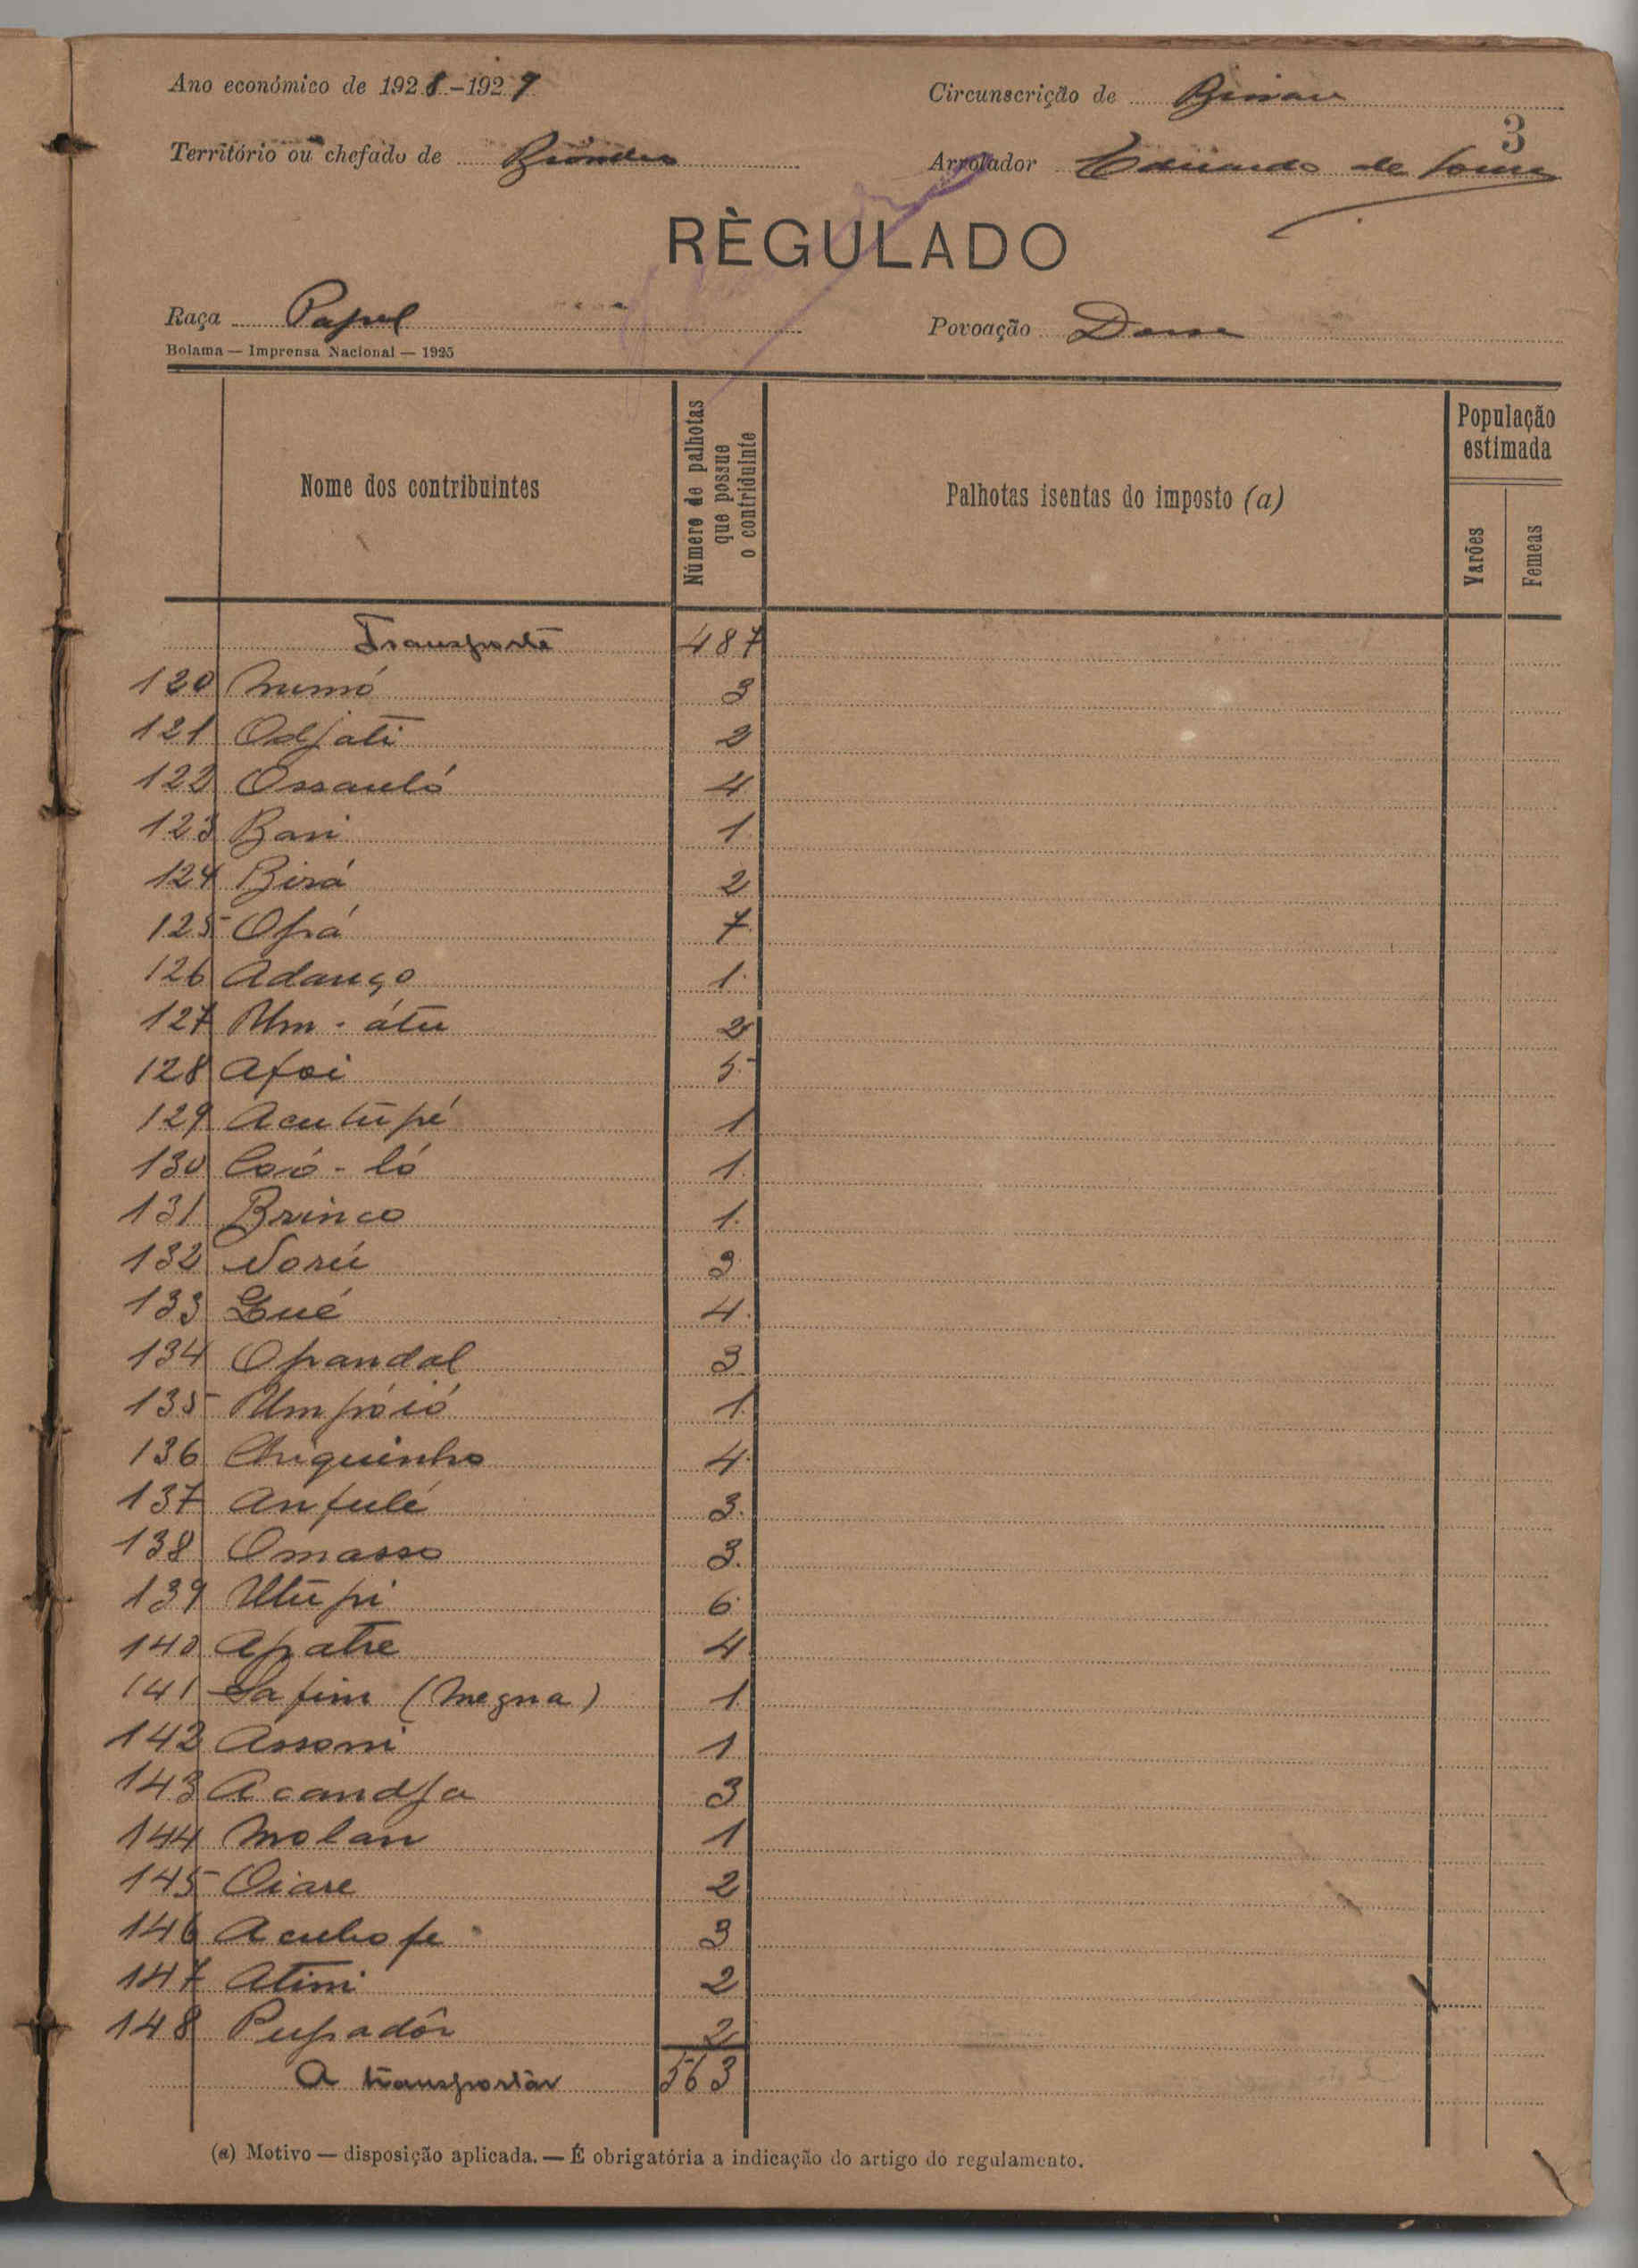 Ano económico de 1928-1929
Circunscrição de Bissau
3
Território ou chefado de Biombo
Arrolador Eduardo de
RÈGULADO
Raça Papel
Povoação
Bolama — Imprensa Nacional — 1925
Nome dos contribuintes
Número de palhotas que possue o contriduinte
Palhotas isentas do imposto (a)
População estimada
Varões
Femeas
Transporte 487
120 Mumó 3
121 Odjati 2
122 Ossauló 4
123 Bari 1
124 Birá 2
125 Opá 7
126 Adanço 1
127 Um-átu 2
128 Afoi 5
129 Acutupé 1
130 Coió-ló 1
131 Brinco 1
132 Norú 3
133 Lué 4
134 Opandal 3
135 Umpóió 1
136 Chiquinho 4
137 Anfulé 3
138 Omasso 3
139 Utupi 6
140 Apatre 4
141 Safim (Negra) 1
142 Assomi 1
143 Acandja 3
144 Molan 1
145 Oiare 2
146 Acubofe 3
147 Atimi 2
148 Pupadôr 2
A transportar 563
(a) Motivo — disposição aplicada. — É obrigatória a indicação do artigo do regulamento.